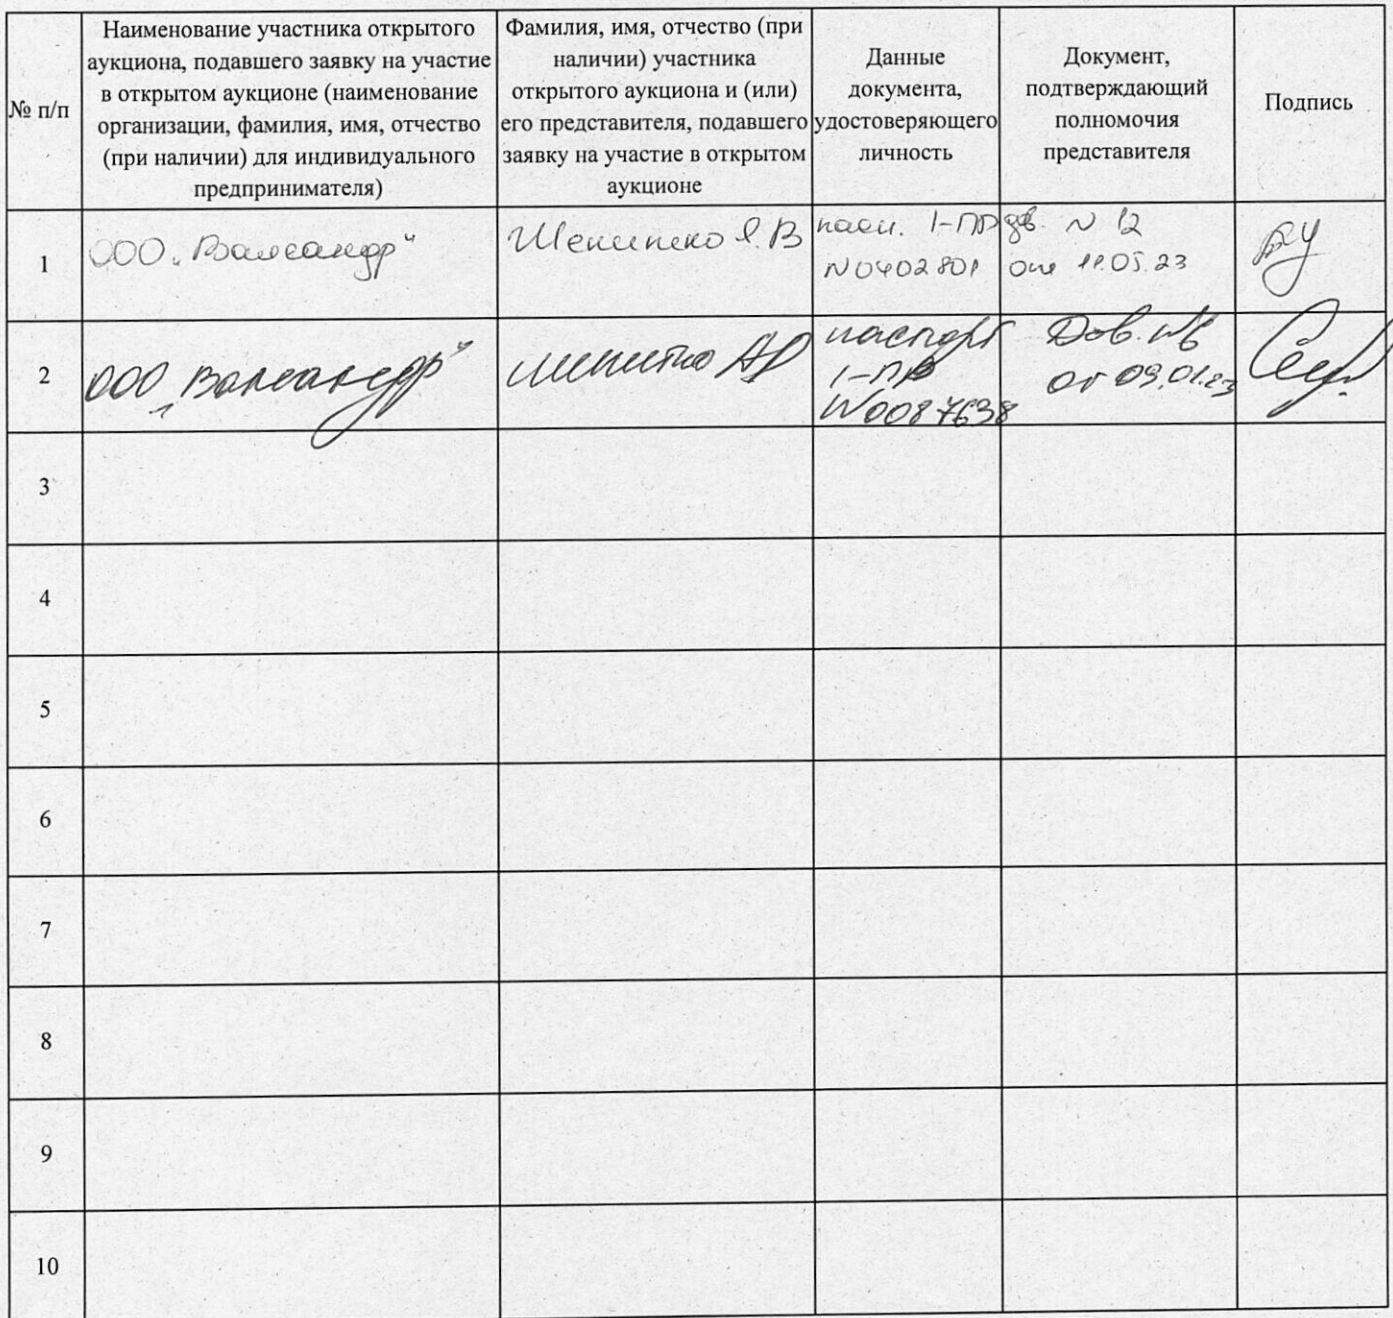 № п/п
Наименование участника открытого
аукциона, подавшего заявку на участие
в открытом аукционе (наименование
организации, фамилия, имя, отчество
(при наличии) для индивидуального
предпринимателя)
Фамилия, имя, отчество (при
наличии) участника
открытого аукциона и (или)
его представителя, подавшего
заявку на участие в открытом
аукционе
Данные
документа,
удостоверяющего
личность
Документ,
подтверждающий
полномочия
представителя
Подпись
1
ООО „Валеандр“
В
пасп. 1-ПР
N 0402801
дов. N 12
от 11.05.23
2
ООО „Валеандр“
паспорт
1-ПР
N 0087638
Дов. №6
от 09.01.23
3
4
5
6
7
8
9
10